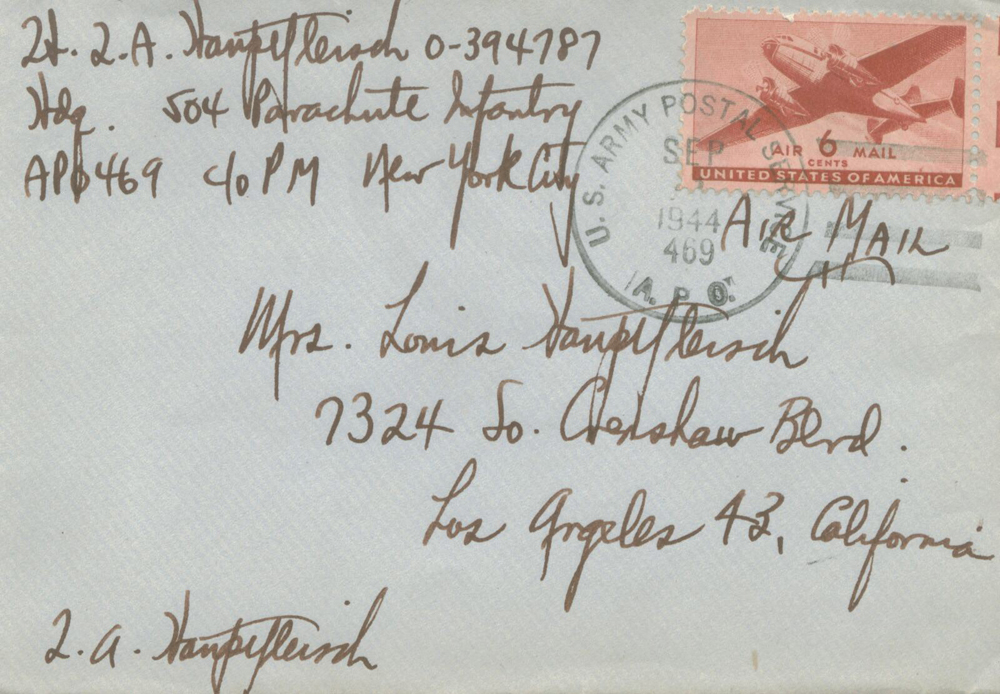 Lt. L. A. Hauptfleisch O-394787
Hdq. 504 Parachute Infantry
APO 469 c/o PM New York City
AIR 6 MAIL
CENTS
UNITED STATES OF AMERICA
U.S. ARMY POSTAL SERVICE
SEP
1944
469
A.P.O.
AIR MAIL
Mrs. Louis Hauptfleisch
7324 So. Crenshaw Blvd.
Los Angeles 43, California
L. A. Hauptfleisch